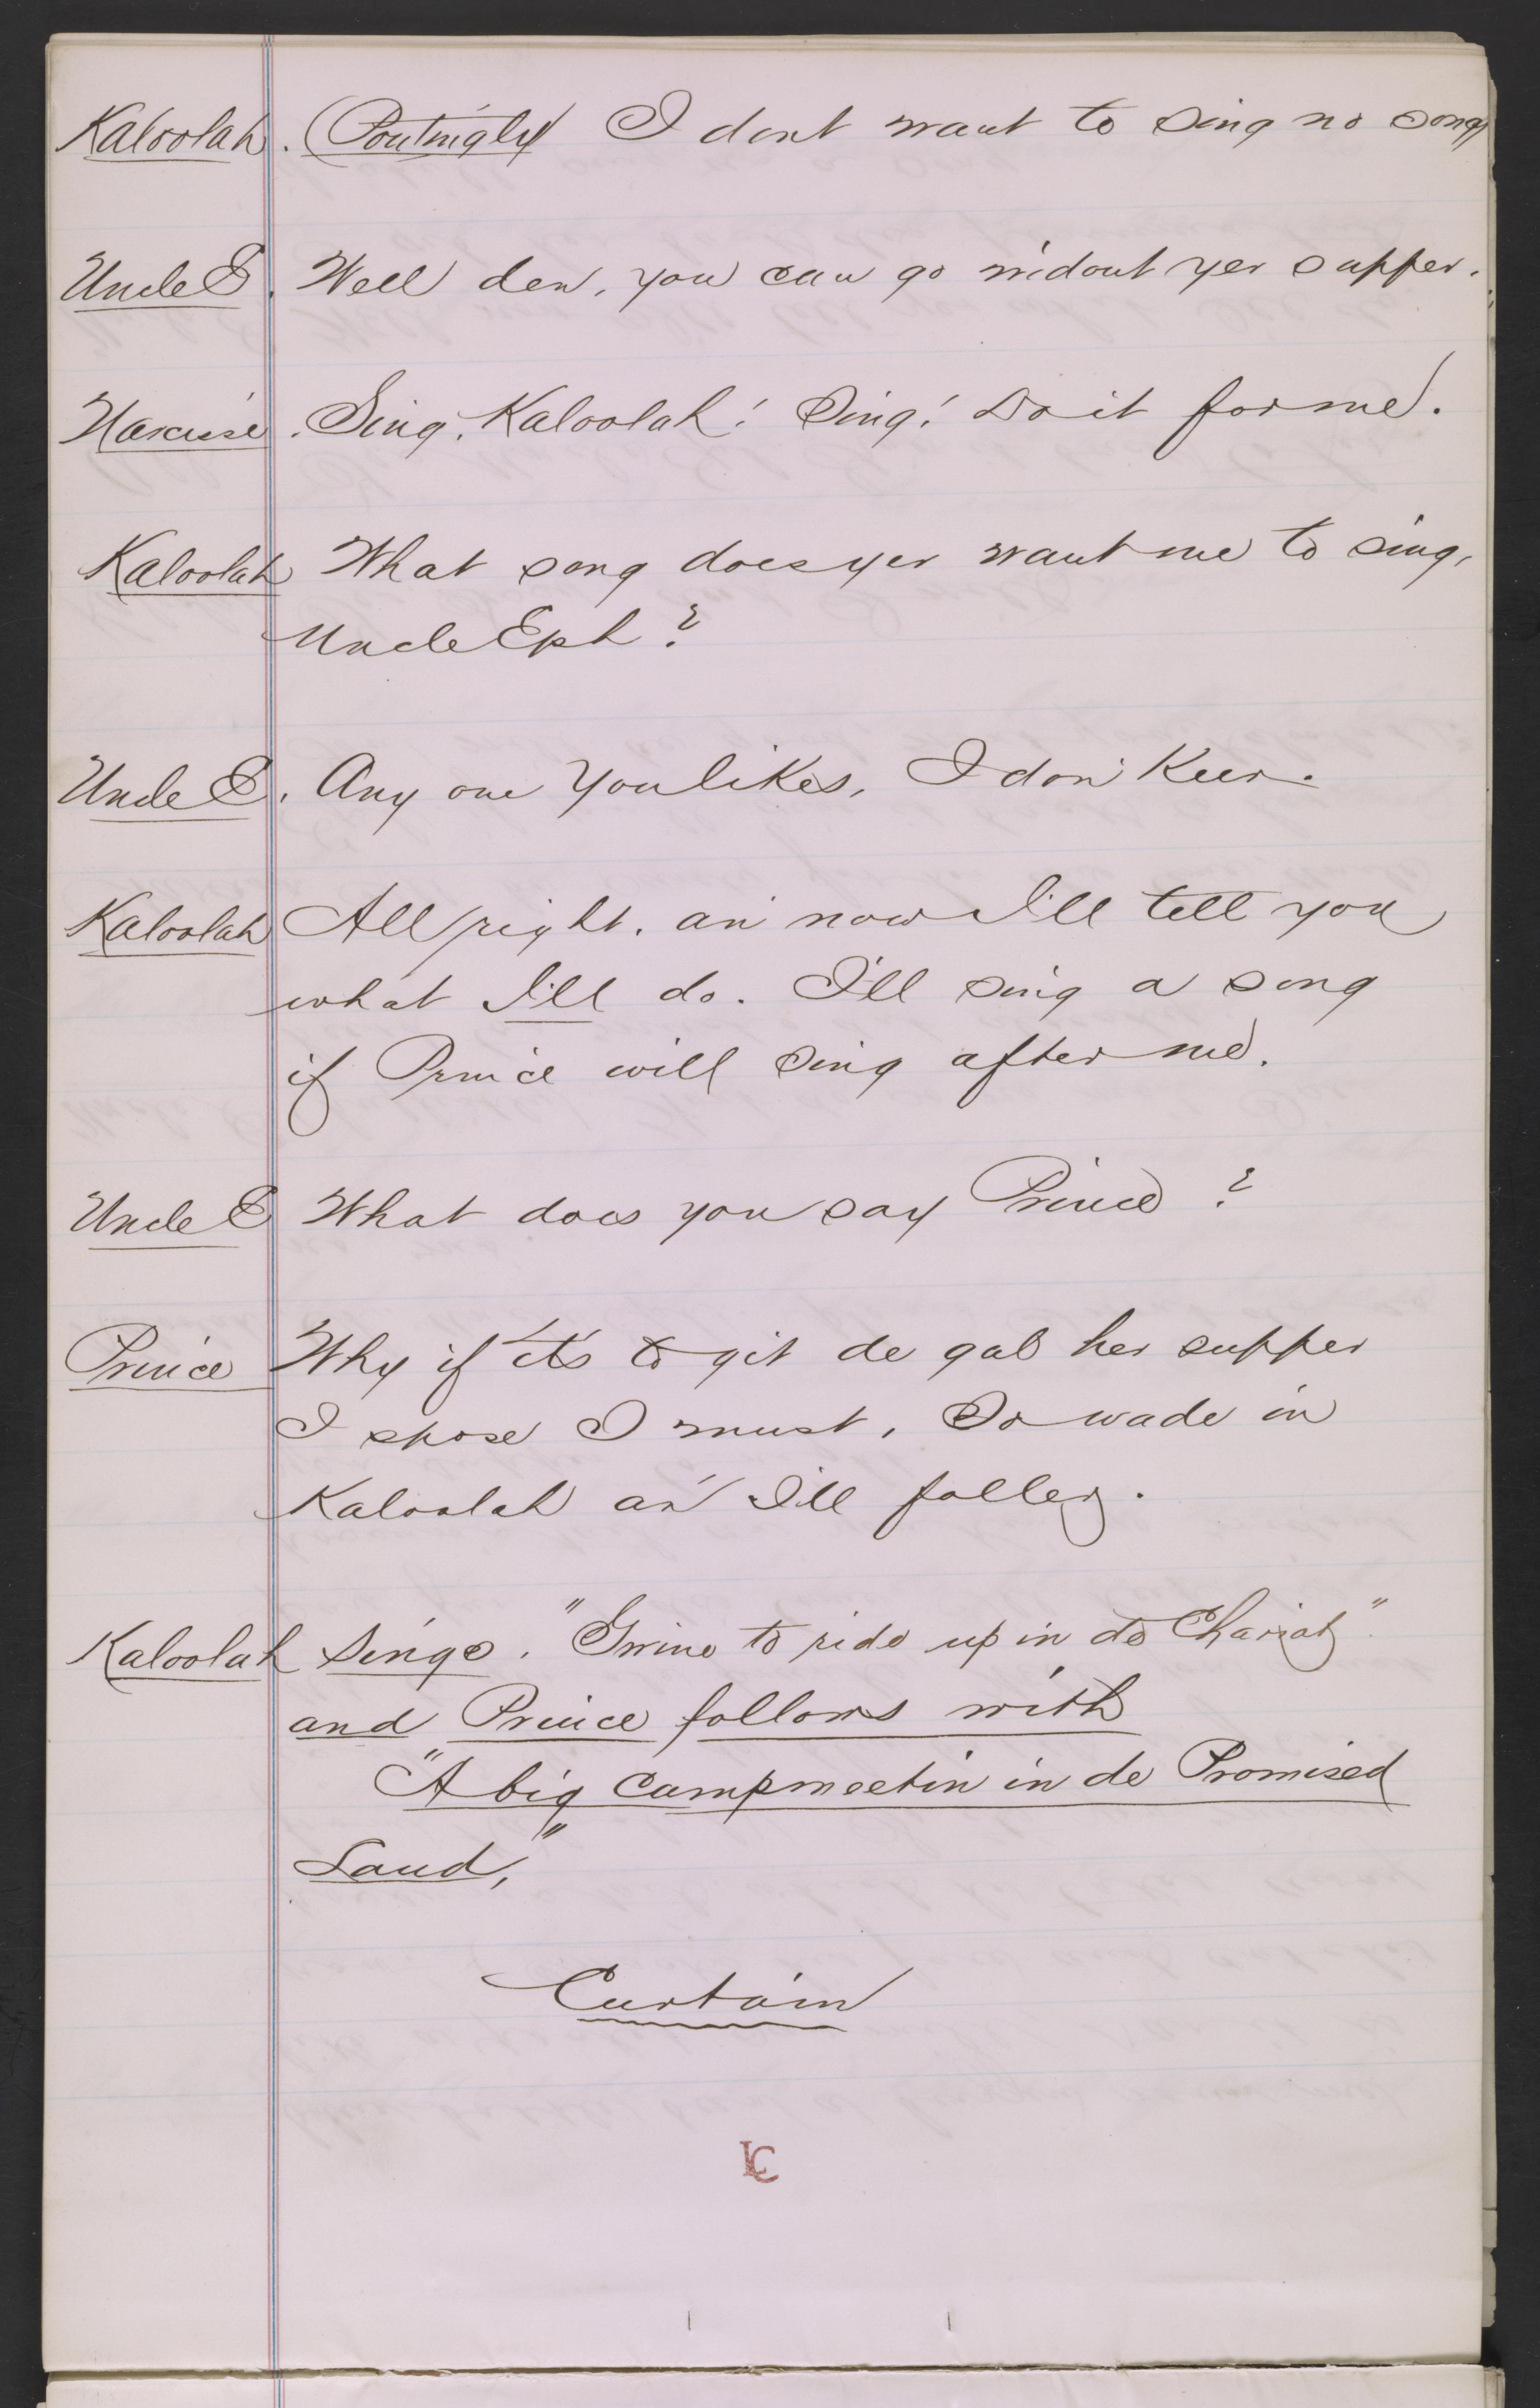 Kaloolah. (Poutingly) I dont want to sing no song
Uncle E. Well den, you can go widout yer supper.
Narcisse. Sing, Kaloolah! Sing! Do it for me.
Kaloolah What song does yer want me to sing,
Uncle Eph?
Uncle E. Any one you likes, I don' keer.
Kaloolah All right. an' now I'll tell you
what I'll do. I'll sing a song
if Prince will sing after me.
Uncle E What does you say Prince?
Prince Why if its to git de gal her supper
I spose I must, So wade in
Kaloolah an' I'll foller.
Kaloolah Sings. "Gwine to ride up in de Chariot"
and Prince follows with
"A big campmeetin in de Promised
Land,"
Curtain
LC